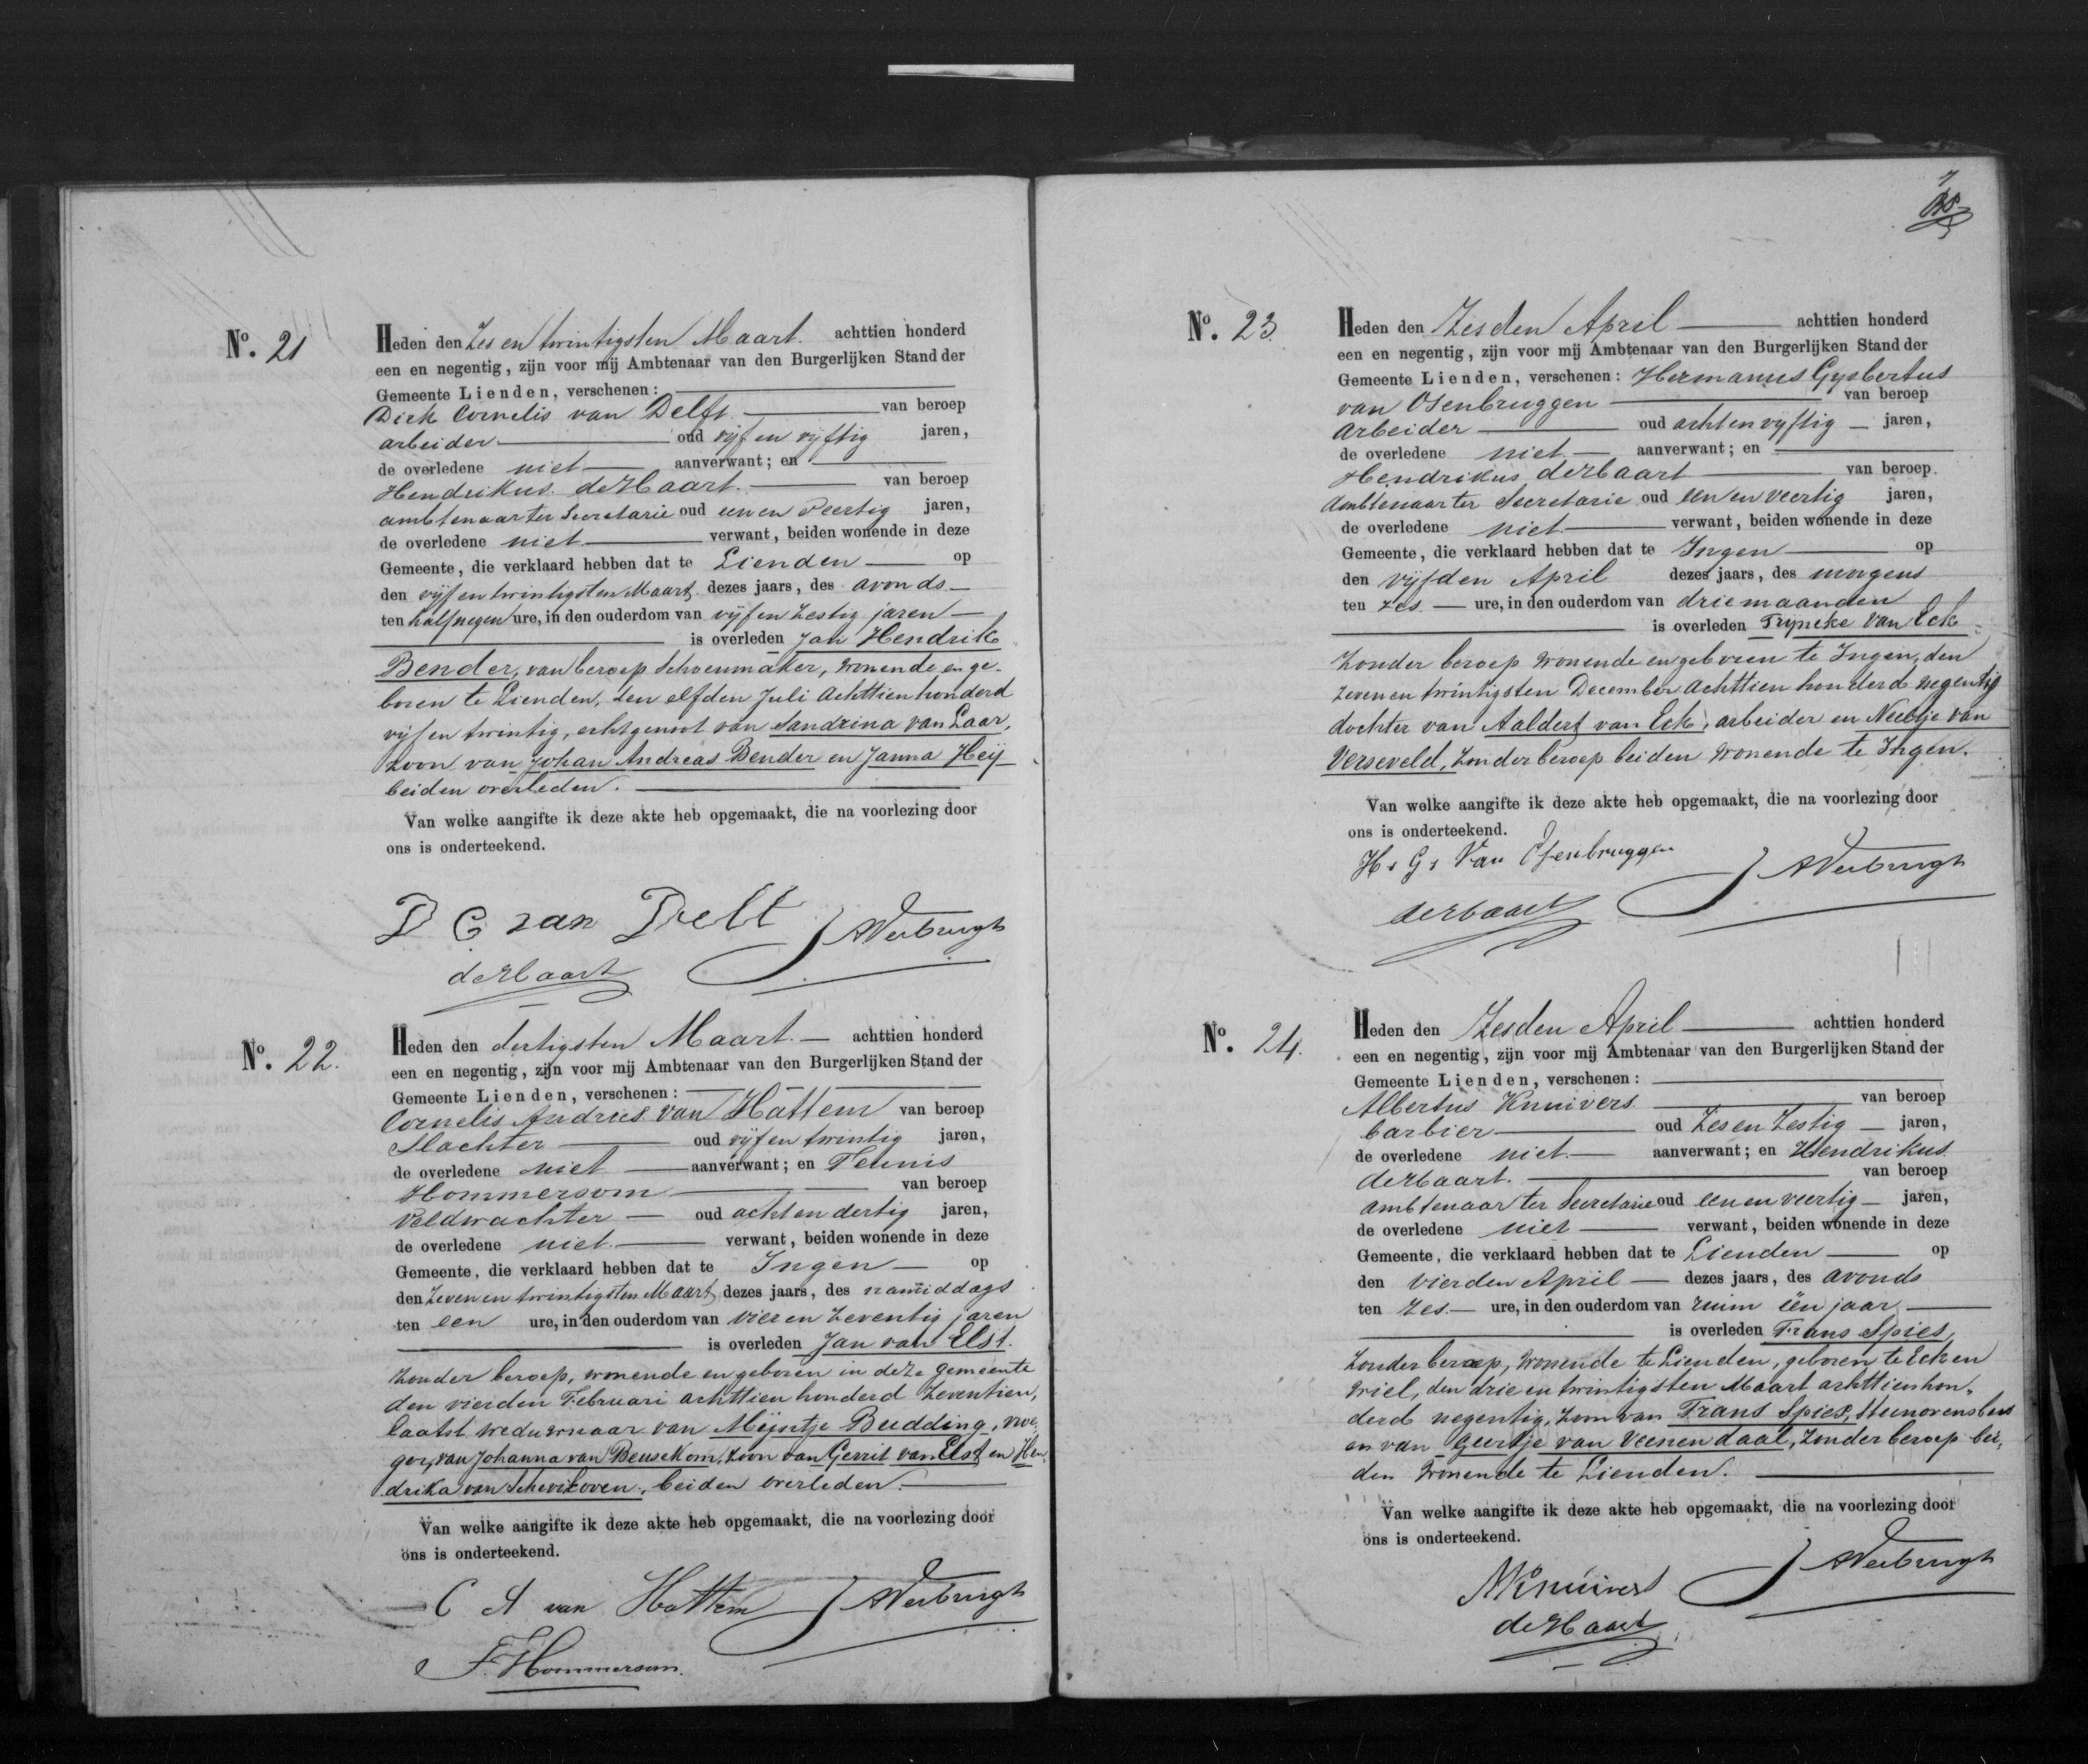 No. 21
Heden den Zes en twintigsten Maart. achttien honderd
een en negentig, zijn voor mij Ambtenaar van den Burgerlijken Stand der
Gemeente Lienden, verschenen:
Dirk Cornelis van Delft van beroep
arbeider oud vijf en vijftig jaren,
de overledene niet aanverwant; en
Hendrikus de Haart. van beroep
ambtenaar ter Secretarie oud een en veertig jaren,
de overledene niet verwant, beiden wonende in deze
Gemeente, die verklaard hebben dat te Lienden op
den vijf en twintigsten Maart dezes jaars, des avonds
ten half negen ure, in den ouderdom van vijf en Zestig jaren
is overleden Jan Hendrik
Bender, van beroep Schoenmaker, wonende en ge-
boren te Lienden, den elfden Juli achttien honderd
vijf en twintig, echtgenoot van Sandrina van Laar,
zoon van Johan Andreas Bender en Janna Heij
beiden overleden.
Van welke aangifte ik deze akte heb opgemaakt, die na voorlezing door
ons is onderteekend.
D C van Delt
AVerbrugh
de Haart
No. 22.
Heden den dertigsten Maart. achttien honderd
een en negentig, zijn voor mij Ambtenaar van den Burgerlijken Stand der
Gemeente Lienden, verschenen:
Cornelis Andries van Hattem van beroep
Slachter oud vijf en twintig jaren,
de overledene niet aanverwant; en Teunis
Hommersom van beroep
Veldwachter oud acht en dertig jaren,
de overledene niet verwant, beiden wonende in deze
Gemeente, die verklaard hebben dat te Ingen op
den Zeven en twintigsten Maart, dezes jaars, des namiddags
ten een ure, in den ouderdom van vier en Zeventig jaren
is overleden Jan van Elst.
Zonder beroep, wonende en geboren in deze gemeente
den vierden Februari achttien honderd Zeventien,
laatst weduwnaar van Mijntje Budding, vroe-
ger, van Johanna van Beusekom, zoon van Gerrit van Elst en Hen-
drika van Schevikoven, beiden overleden.
Van welke aangifte ik deze akte heb opgemaakt, die na voorlezing door
ons is onderteekend.
C A van Hattem
AVerbrugh
T. Hommersom.
7
No. 23.
Heden den Zesden April achttien honderd
een en negentig, zijn voor mij Ambtenaar van den Burgerlijken Stand der
Gemeente Lienden, verschenen: Hermanus Gysbertus
van Osenbruggen van beroep
Arbeider oud acht en vijftig jaren,
de overledene niet aanverwant; en
Hendrikus de Haart van beroep
Ambtenaar ter Secretarie oud een en veertig jaren,
de overledene niet verwant, beiden wonende in deze
Gemeente, die verklaard hebben dat te Ingen op
den vijfden April dezes jaars, des morgens
ten zes ure, in den ouderdom van drie maanden
is overleden Tryneke van Eck
Zonder beroep wonende en geboren te Ingen, den
zeven en twintigsten December achttien honderd negentig
dochter van Aaldert van Eck, arbeider en Neeltje van
Verseveld, Zonder beroep beiden wonende te Ingen.
Van welke aangifte ik deze akte heb opgemaakt, die na voorlezing door
ons is onderteekend.
H. G. Van Osenbruggen
AVerbrugh
de Haart
No. 24.
Heden den Zesden April achttien honderd
een en negentig, zijn voor mij Ambtenaar van den Burgerlijken Stand der
Gemeente Lienden, verschenen:
Albertus Knuivers van beroep
barbier oud Zes en Zestig jaren,
de overledene niet aanverwant; en Hendrikus
de Haart. van beroep
ambtenaar ter Secretarie oud een en veertig jaren,
de overledene niet verwant, beiden wonende in deze
Gemeente, die verklaard hebben dat te Lienden op
den vierden April dezes jaars, des avonds
ten zes ure, in den ouderdom van ruim één jaar
is overleden Frans Spies,
Zonder beroep, wonende te Lienden, geboren te Eck en
Wiel, den drie en twintigsten Maart achttien hon-
derd negentig, zoon van Frans Spies, Steenovensbaas
en van Geertje van Veenendaal, Zonder beroep bei-
den wonende te Lienden.
Van welke aangifte ik deze akte heb opgemaakt, die na voorlezing door
ons is onderteekend.
AKnuivers
AVerbrugh
de Haart